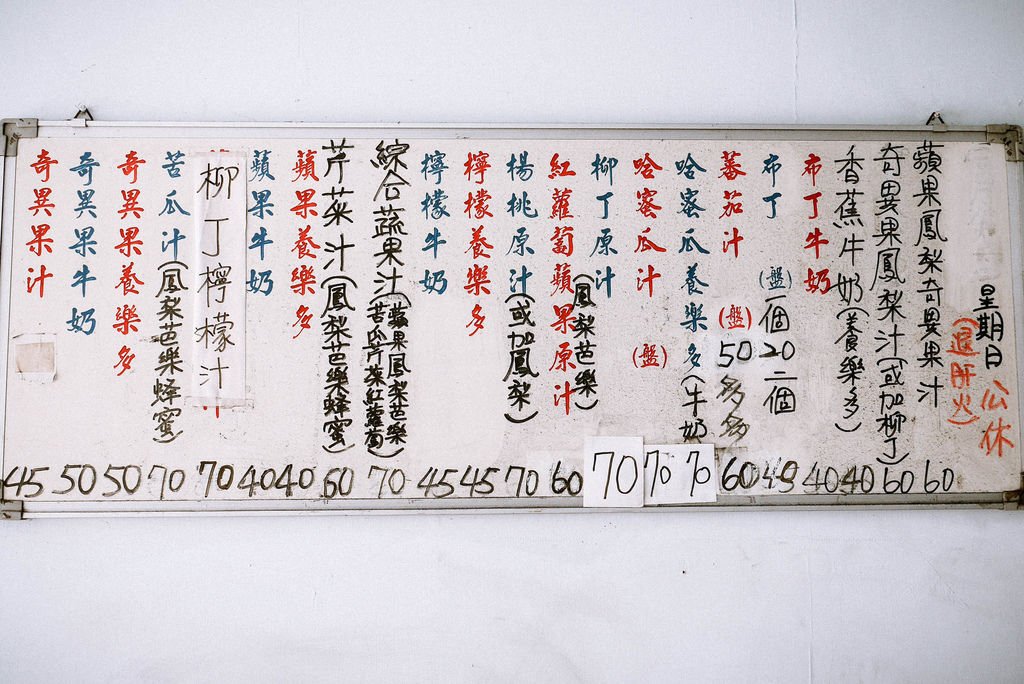 星期日公休
(退肝火)
蘋果鳳梨奇異果汁 60
奇異果鳳梨汁(或加柳丁) 60
香蕉牛奶(養樂多) 40
布丁牛奶 40
布丁(盤)一個20二個 40
蕃茄汁(盤)50 60
哈蜜瓜養樂多(牛奶) 70
哈蜜瓜汁(盤) 70
柳丁原汁 70
紅蘿蔔蘋果原汁(鳳梨芭樂) 60
楊桃原汁(或加鳳梨) 70
檸檬養樂多 45
檸檬牛奶 45
綜合蔬果汁(蘋果鳳梨芭樂苦瓜芹菜紅蘿蔔) 70
芹菜汁(鳳梨芭樂蜂蜜) 60
蘋果養樂多 40
蘋果牛奶 40
柳丁檸檬汁 70
苦瓜汁(鳳梨芭樂蜂蜜) 70
奇異果養樂多 50
奇異果牛奶 50
奇異果汁 45